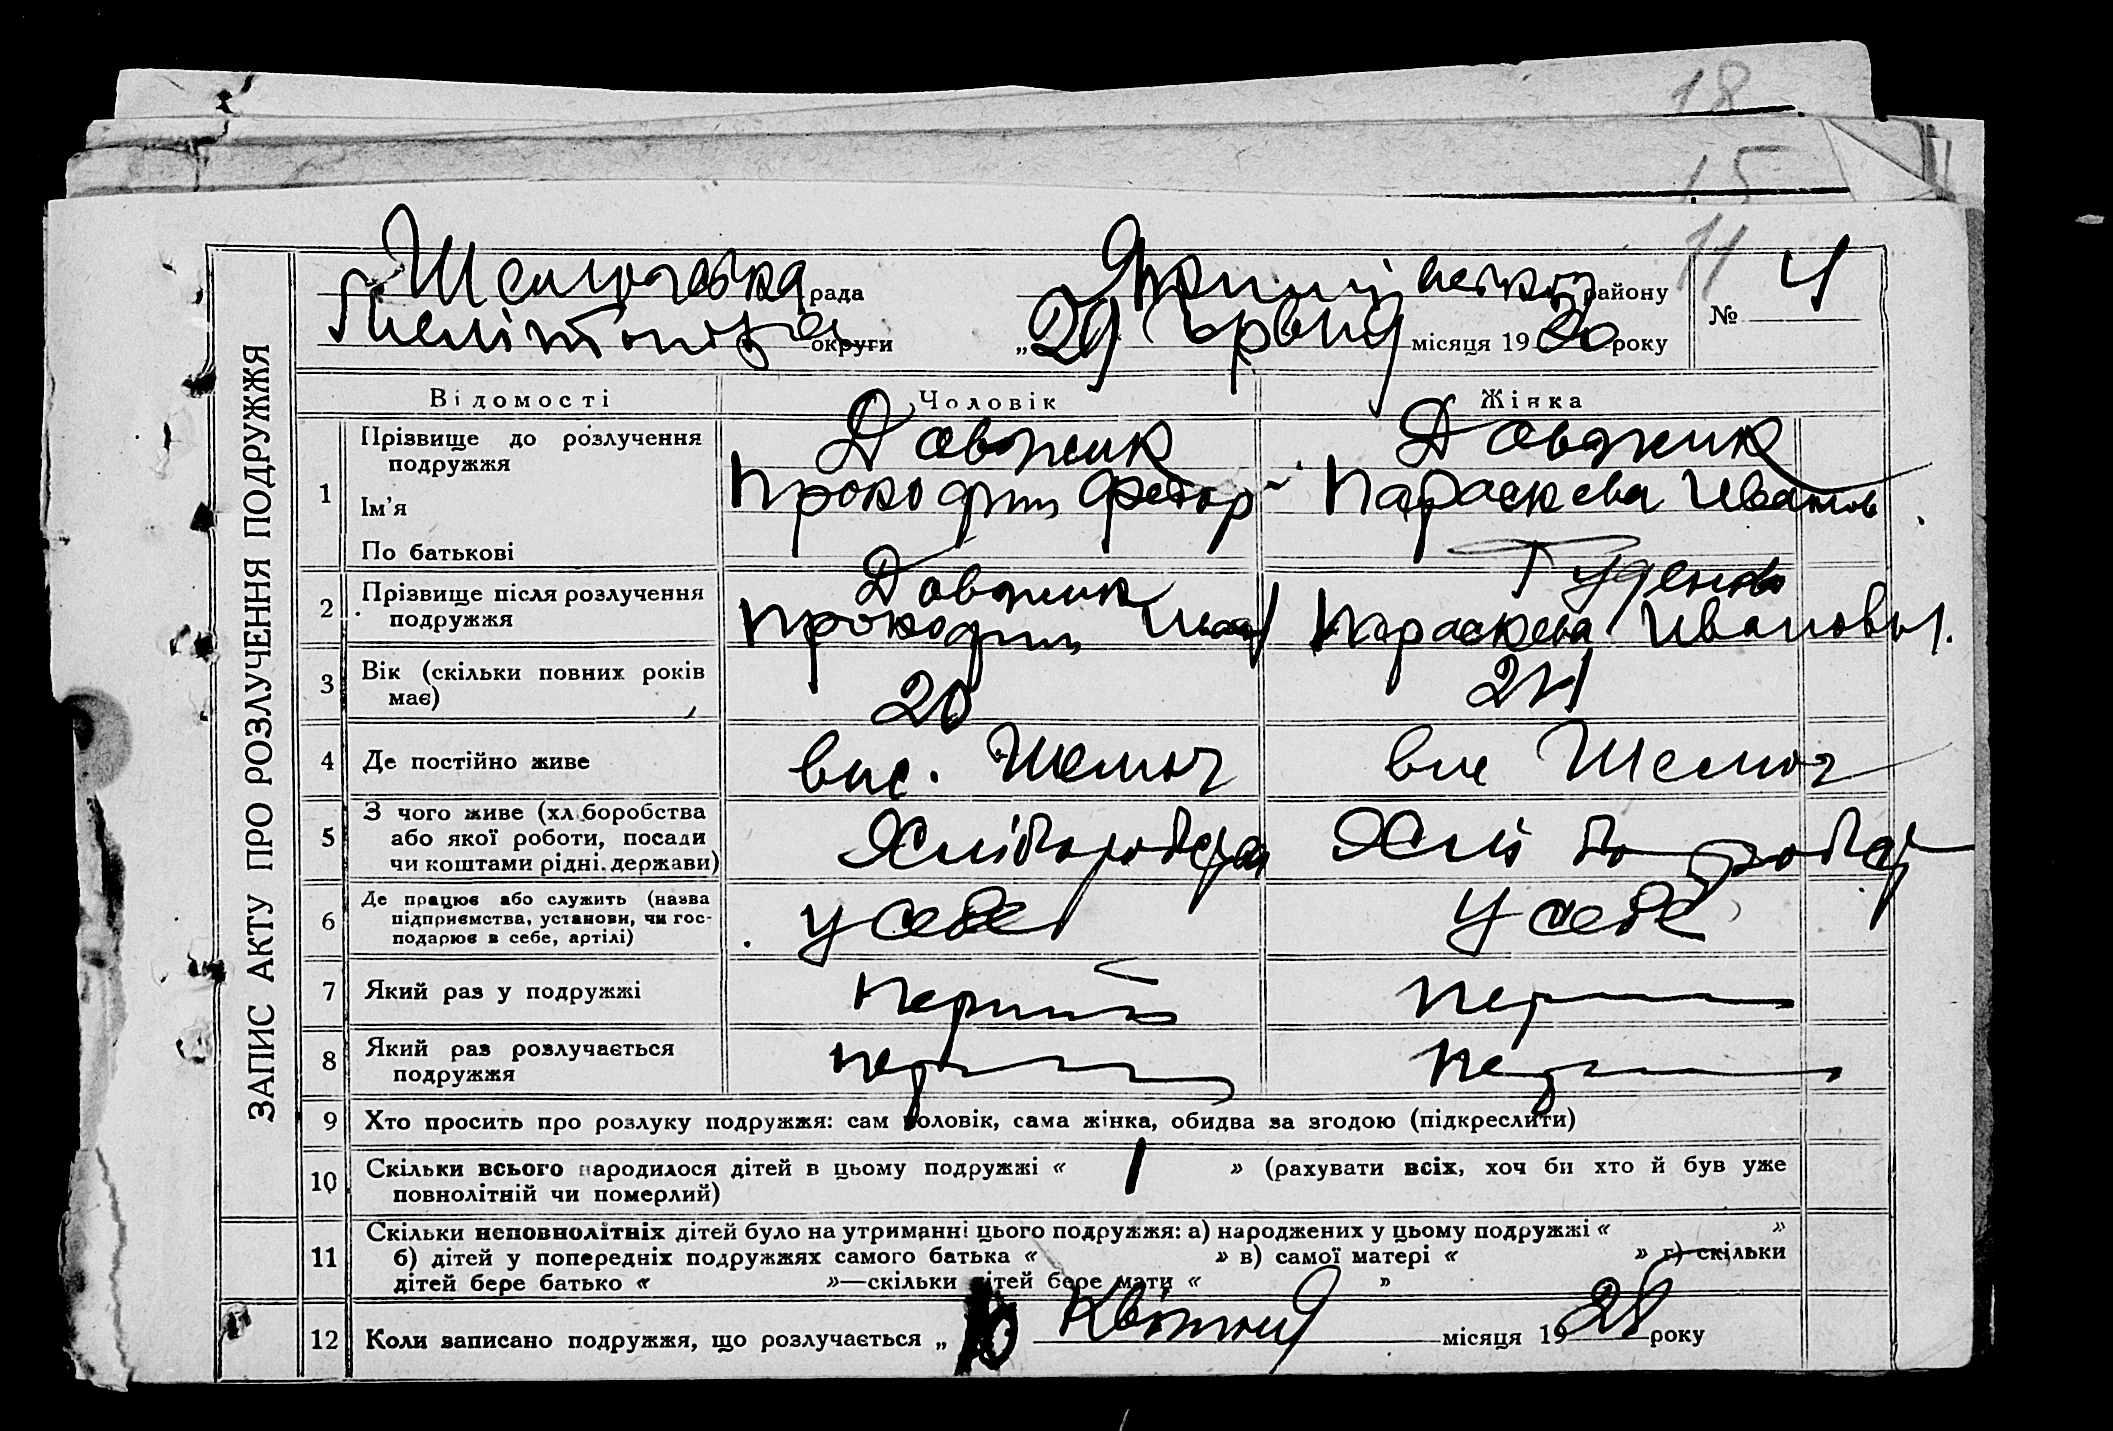 18
15
11
ЗАПИС АКТУ ПРО РОЗЛУЧЕННЯ ПОДРУЖЖЯ
Шелюгівська рада району
округи „29 місяця 1930 року
№ 4
Відомості Чоловік Жінка
1 Прізвище до розлучення подружжя Довжик Довжик
Ім'я Прокофий Федор Параскева Иванов
По батькові
2 Прізвище після розлучення подружжя Довжик Прокофий Гуденко Параскева Ивановы.
3 Вік (скільки повних років має) 20 21
4 Де постійно живе вис. Шелюг вис Шелюг
5 З чого живе (хліборобства або якої роботи, посади чи коштами рідні, держави) Хліборобства Хліборобст
6 Де працює або служить (назва підприємства, установи, чи господарює в себе, артілі) у себе у себе
7 Який раз у подружжі перший перш
8 Який раз розлучається подружжя перш перш
9 Хто просить про розлуку подружжя: сам чоловік, сама жінка, обидва за згодою (підкреслити)
10 Скільки всього народилося дітей в цьому подружжі « 1 » (рахувати всіх, хоч би хто й був уже
повнолітній чи померлий)
11 Скільки неповнолітніх дітей було на утриманні цього подружжя: а) народжених у цьому подружжі « »
б) дітей у попередніх подружжях самого батька « » в) самої матері « » г) скільки
дітей бере батько « »—скільки дітей бере мати « »
12 Коли записано подружжя, що розлучається „ Квітня місяця 1928 року